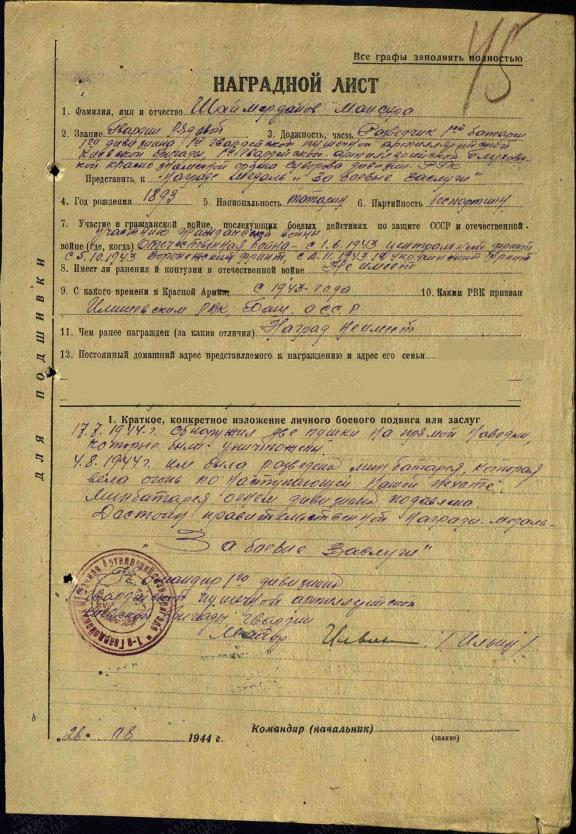 45
Все графы заполнять полностью
НАГРАДНОЙ ЛИСТ
1. Фамилия, имя и отчество Шаймерданов Мансура
2. Звание Гвардии Рядовой 3. Должность, часть Разведчик 1ой батареи
1го дивизиона 1й Гвардейской пушечной артиллерийской
Киевской бригады, 1й Гвардейской артиллерийской Глухов-
ской краснознаменной ордена Суворова дивизии РГК
Представить к "Награде Медаль "За боевые заслуги"
4. Год рождения 1893 5. Национальность татарин 6. Партийность беспартийн
7. Участие в гражданской войне, последующих боевых действиях по защите СССР и отечественной
участник гражданской войны
войне (где, когда) Отечественная война - с 1.6.1943 центральный фронт
с 5.10.1943 Воронежский фронт, с 2.11.1943 1й украинский фронт
8. Имеет ли ранения и контузии в отечественной войне Не имеет
9. С какого времени в Красной Армии с 1943 года 10. Каким РВК призван
Илишевском РВК, Баш. АССР
11. Чем ранее награжден (за какие отличия) Наград не имеет
12. Постоянный домашний адрес представляемого к награждению и адрес его семьи
ДЛЯ ПОДШИВКИ
1. Краткое, конкретное изложение личного боевого подвига или заслуг
17.7.1944г. Обнаружил две пушки на прямой наводки,
которые были уничтожены
4.8.1944г. им была разведена минбатарея, которая
вела огонь по наступающей нашей пехоте.
Минбатарея огнем дивизиона подавлена.
Достоин правительственной награды медаль-
"За боевые заслуги"
Командир 1го дивизиона
Гвардейской пушечной артиллерийской
Киевской бригады Гвардии
Майор /Ильин/
"26" 08 1944 г.
Командир (начальник)
(звание)